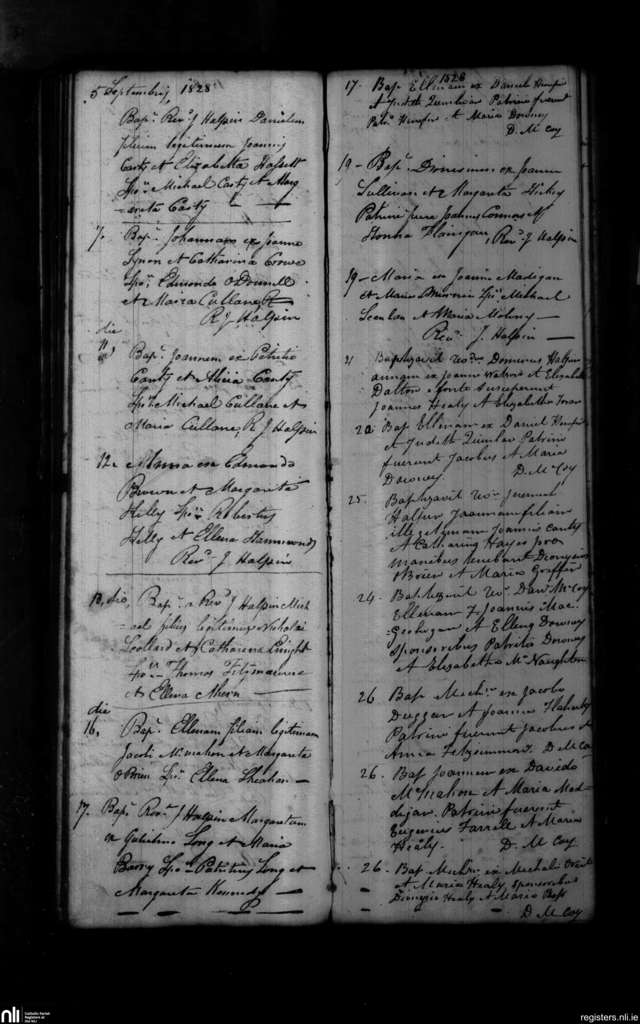 5 Septembris 1828
Bap. Revd J Halpin Danielem
filium legitimum Joannis
Carty et Elizabetha Hassett
Spr Michael Carty et Marg
=areta Carty
7. Bap. Johannam ex Joanne
et Catharina Crowe
Spr Edmondo O Donnell
et Maria Cullane
R J Halpin
die
11 Bap. Joannem ex Patritio
Canty et Alicia Canty
Spr Michael Cullane et
Maria Cullane, R J Halpin
12. Anna ex Edmondo
Brown et Margareta
Helly Spr Robertus
Helly et Ellena
Revd J Halpin
die, Bap. a Revd J Halpin Mich
=ael filius legitimus Nicholai
et Catharina Enright
Spr Thomas Fitzmaurice
et Ellena Ahern
die
16, Bap. Ellenam filiam legitimam
Jacobi McMahon et Margareta
O Brien Spr Ellena Sheahan
17. Bap. Revd J Halpin Margaretam
ex Long et Maria
Barry Spr Patritius Long et
Margareta Kennedy
1828
17. Bap Ellenam ex Daniel
et Judith Quinlan Patrini fuerunt
Pat. et Maria Downey
D. McCoy
19 - Bap. Dionisium ex Joanne
Sullivan et Margareta Hickey
Patrini fuere Joannes Connors et
Honna Flanigan, Revd J Halpin
19 - Maria ex Joanne Madigan
et Maria Spr Michael
Scanlan et Maria Molony
Revd J. Halpin
21 Baptizavit Dominus Halpin
annam ex Joanne et Elizabeth
Dalton e fonte susceperunt
Joannes Healy et Elizabetha
22 Bap Ellenam ex Daniel
et Judith Quinlan Patrini
fuerunt Jacobus et Maria
Downey. D. McCoy
25 Baptizavit
Halpin Joannam filiam
Joannis Canty
et Catharina Hayes pro
manibus tenebant Dionysius
O Brien et Maria Griffin
24. Baptizavit Davd McCoy
Ellenam F. Joannis Mac.
Geohegan et Ellena Downey
sponsoribus Patritio Downey
et Elizabetha McNaughton
26 Bap Mich. ex Jacobo
Duggan et Joanna Flaherty
Patrini fuerunt Jacobus et
Anna Fitzsimmons. D. McCoy
26. Bap Joannem ex Davido
McMahon et Maria Mad-
digan, Patrini fuerunt
Eugenius Farrell et Maria
Healy. D. McCoy
26 Bap Mich. ex Michael
et Maria Healy, sponsoribus
Dionysio Healy et Maria
D. McCoy
nli
Catholic Parish
Registers at
the NLI
registers.nli.ie